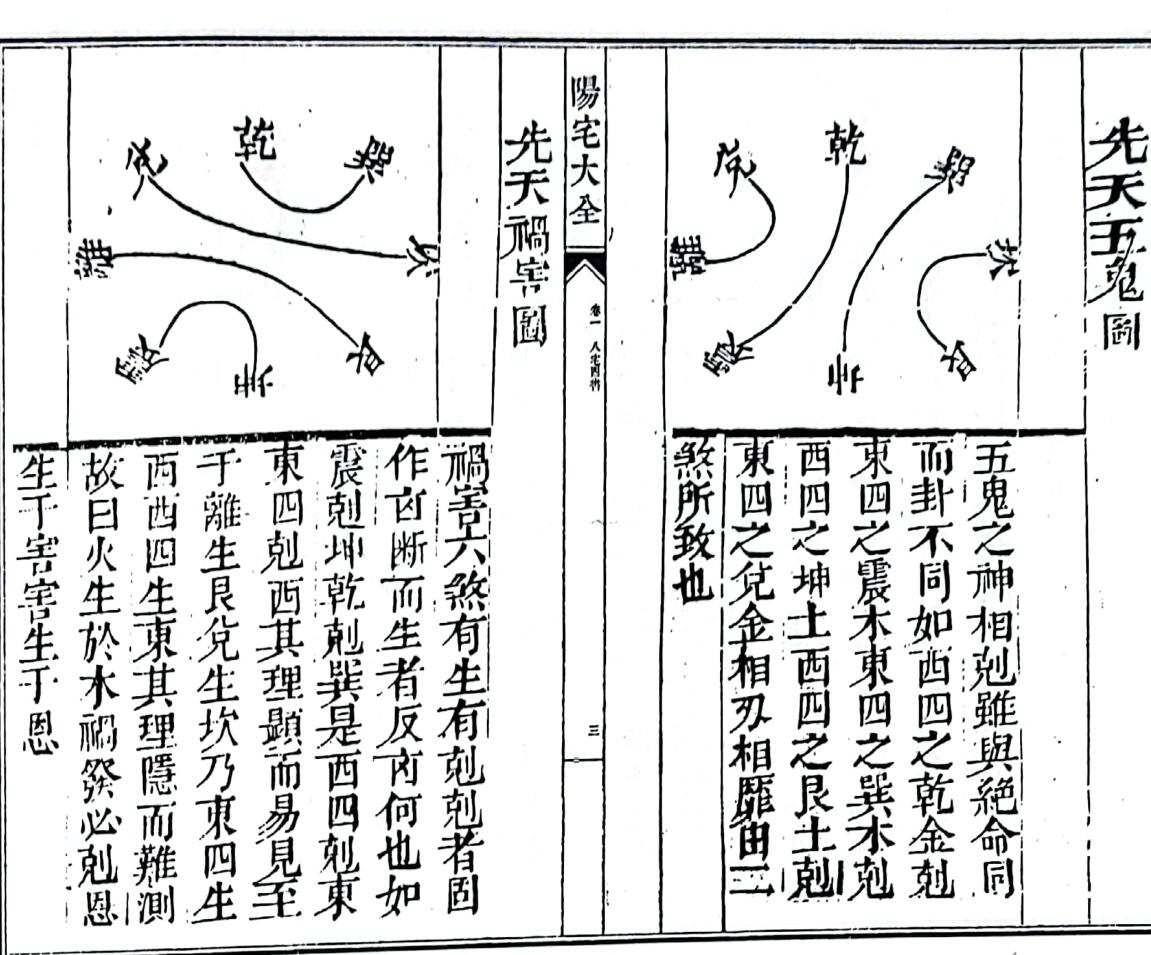 先天五鬼圖
乾
兌
巽
離
坎
震
艮
坤
五鬼之神相剋雖與絶命同
而卦不同如西四之乾金剋
東四之震木東四之巽木剋
西四之坤土西四之艮土剋
東四之兌金相刃相靡由三
煞所致也
陽宅大全
卷一 八宅四書
三
先天禍害圖
乾
兌
巽
離
坎
震
艮
坤
禍害六煞有生有剋剋者固
作凶断而生者反凶何也如
震剋坤乾剋巽是西四剋東
東四剋西其理顯而易見至
于離生艮兌生坎乃東四生
西西四生東其理隱而難測
故曰火生於木禍發必剋恩
生于害害生于恩